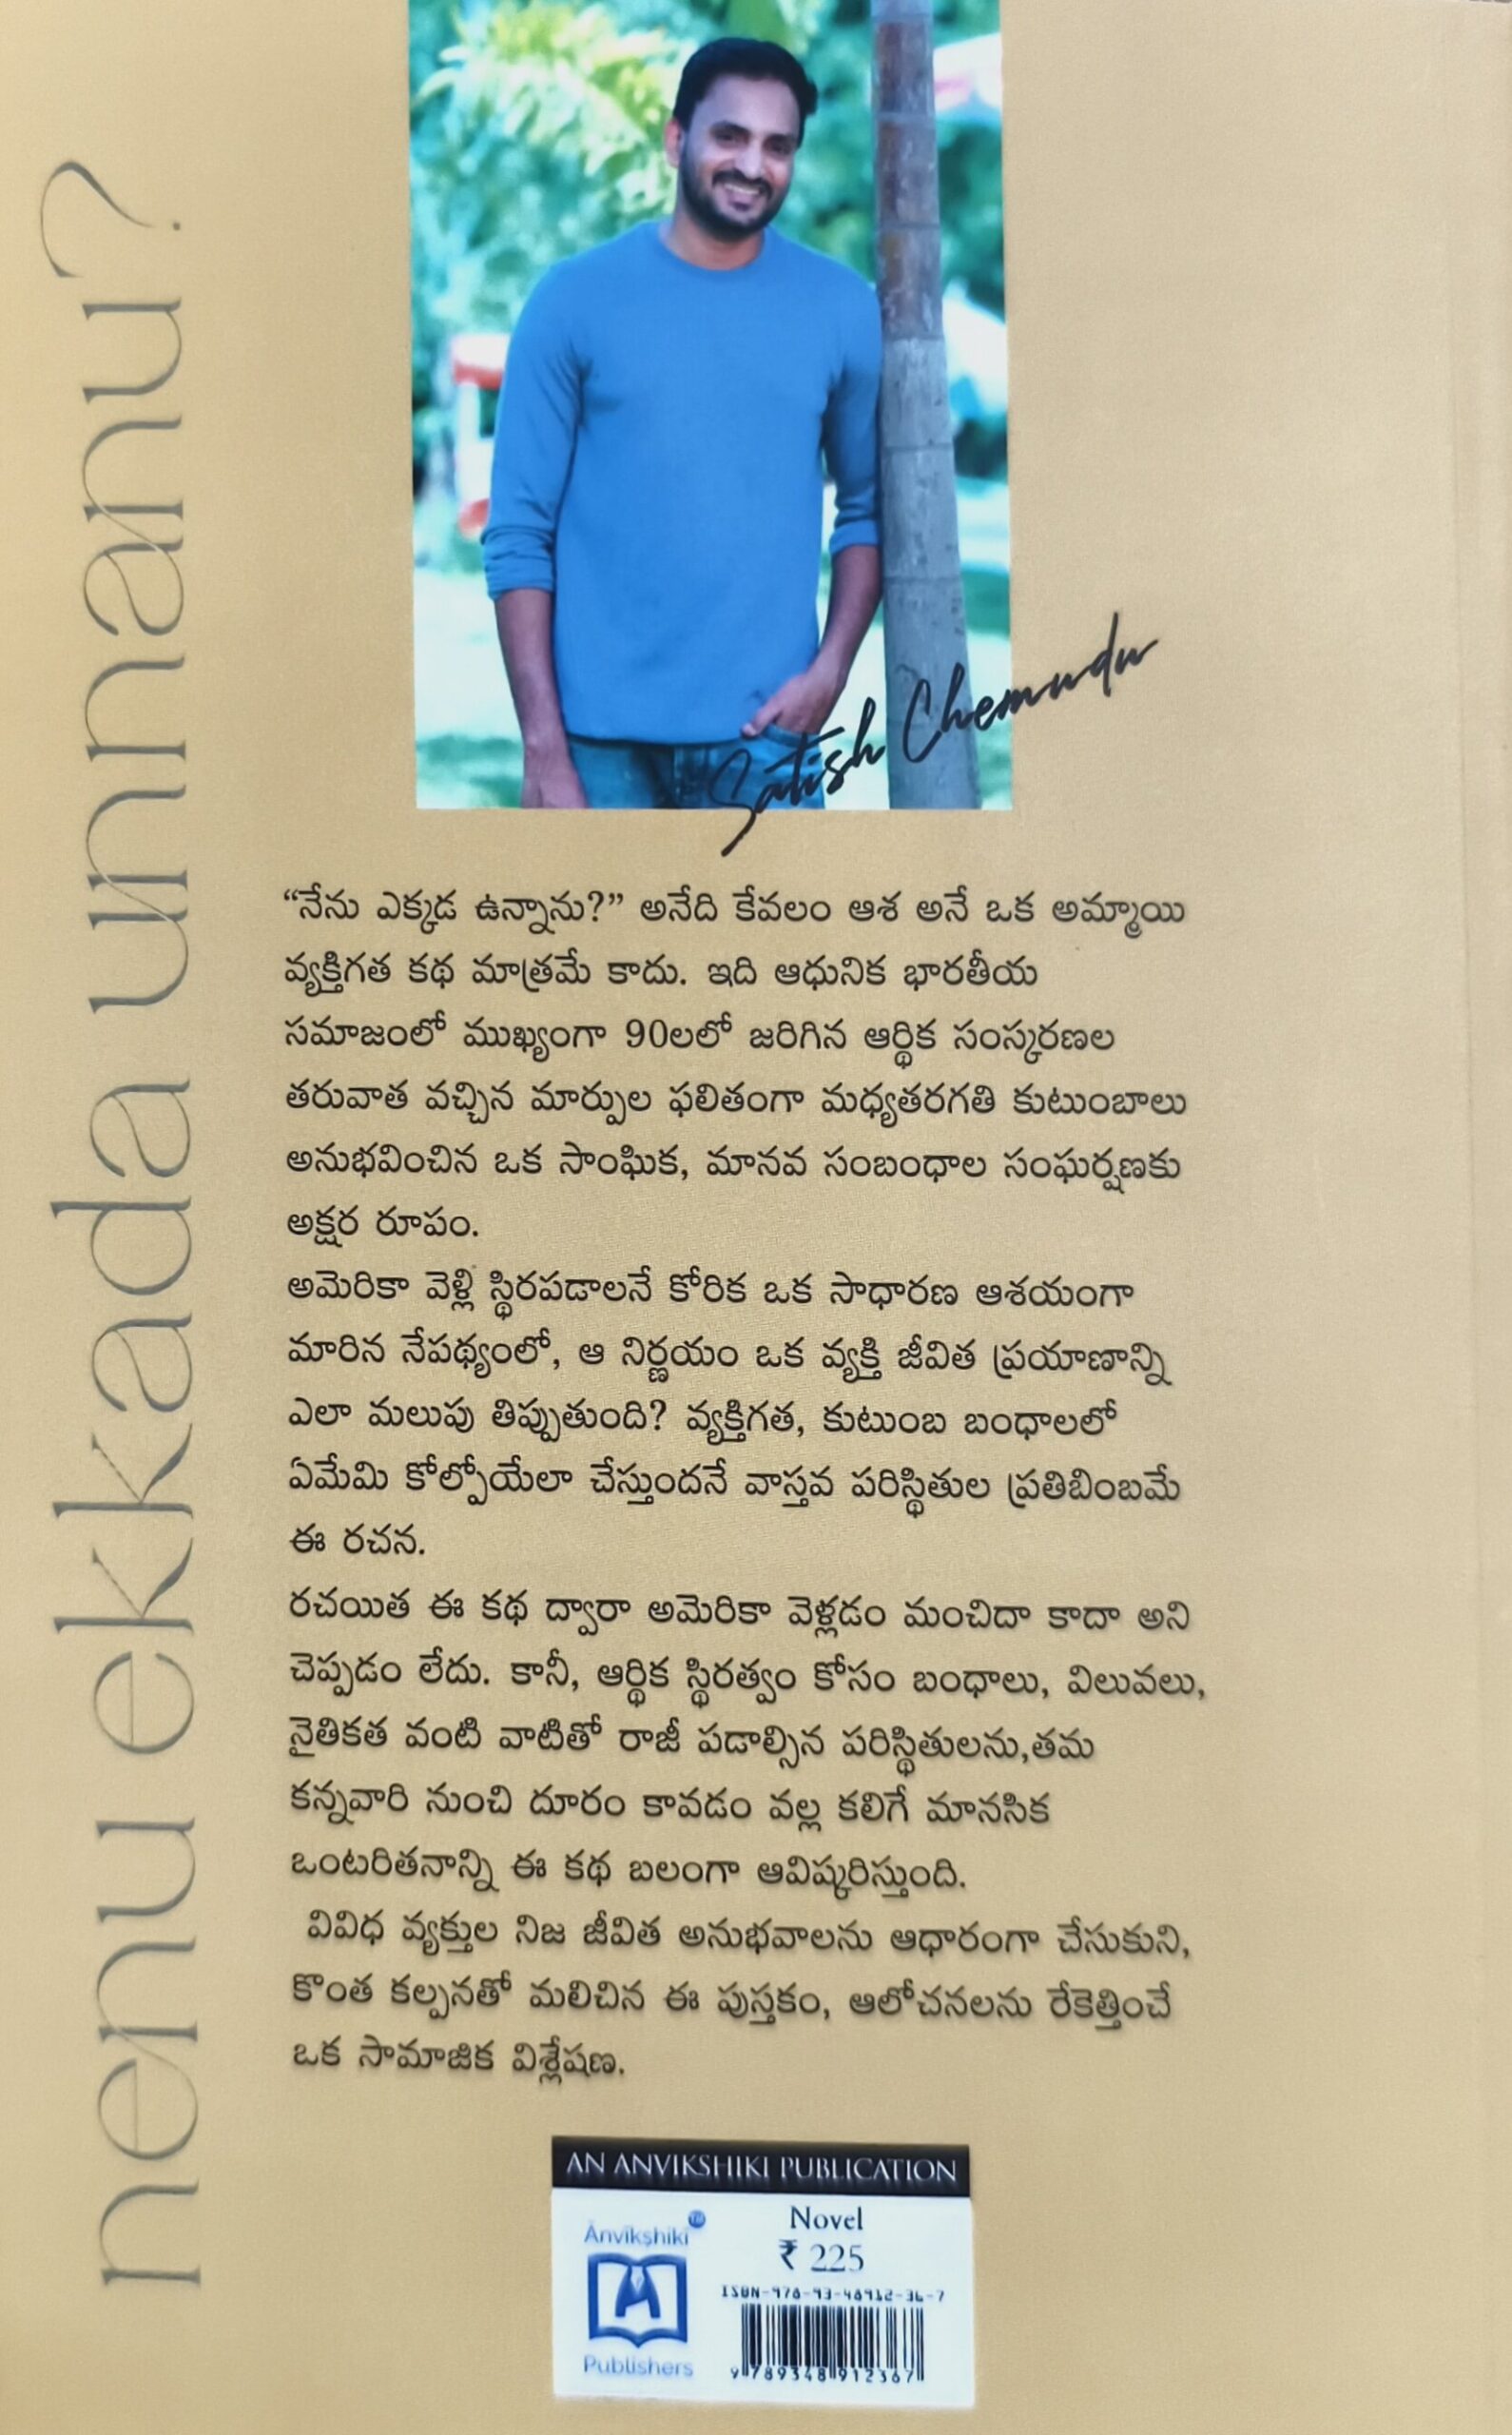 nenu ekkada unnanu?
Satish Chemudu
“నేను ఎక్కడ ఉన్నాను?” అనేది కేవలం ఆశ అనే ఒక అమ్మాయి
వ్యక్తిగత కథ మాత్రమే కాదు. ఇది ఆధునిక భారతీయ
సమాజంలో ముఖ్యంగా 90లలో జరిగిన ఆర్థిక సంస్కరణల
తరువాత వచ్చిన మార్పుల ఫలితంగా మధ్యతరగతి కుటుంబాలు
అనుభవించిన ఒక సాంఘిక, మానవ సంబంధాల సంఘర్షణకు
అక్షర రూపం.
అమెరికా వెళ్లి స్థిరపడాలనే కోరిక ఒక సాధారణ ఆశయంగా
మారిన నేపథ్యంలో, ఆ నిర్ణయం ఒక వ్యక్తి జీవిత ప్రయాణాన్ని
ఎలా మలుపు తిప్పుతుంది? వ్యక్తిగత, కుటుంబ బంధాలలో
ఏమేమి కోల్పోయేలా చేస్తుందనే వాస్తవ పరిస్థితుల ప్రతిబింబమే
ఈ రచన.
రచయిత ఈ కథ ద్వారా అమెరికా వెళ్లడం మంచిదా కాదా అని
చెప్పడం లేదు. కానీ, ఆర్థిక స్థిరత్వం కోసం బంధాలు, విలువలు,
నైతికత వంటి వాటితో రాజీ పడాల్సిన పరిస్థితులను,తమ
కన్నవారి నుంచి దూరం కావడం వల్ల కలిగే మానసిక
ఒంటరితనాన్ని ఈ కథ బలంగా ఆవిష్కరిస్తుంది.
వివిధ వ్యక్తుల నిజ జీవిత అనుభవాలను ఆధారంగా చేసుకుని,
కొంత కల్పనతో మలిచిన ఈ పుస్తకం, ఆలోచనలను రేకెత్తించే
ఒక సామాజిక విశ్లేషణ.
AN ANVIKSHIKI PUBLICATION
Ānvīkṣhikī
Publishers
Novel
₹ 225
ISBN-978-93-48912-36-7
9 789348 912367